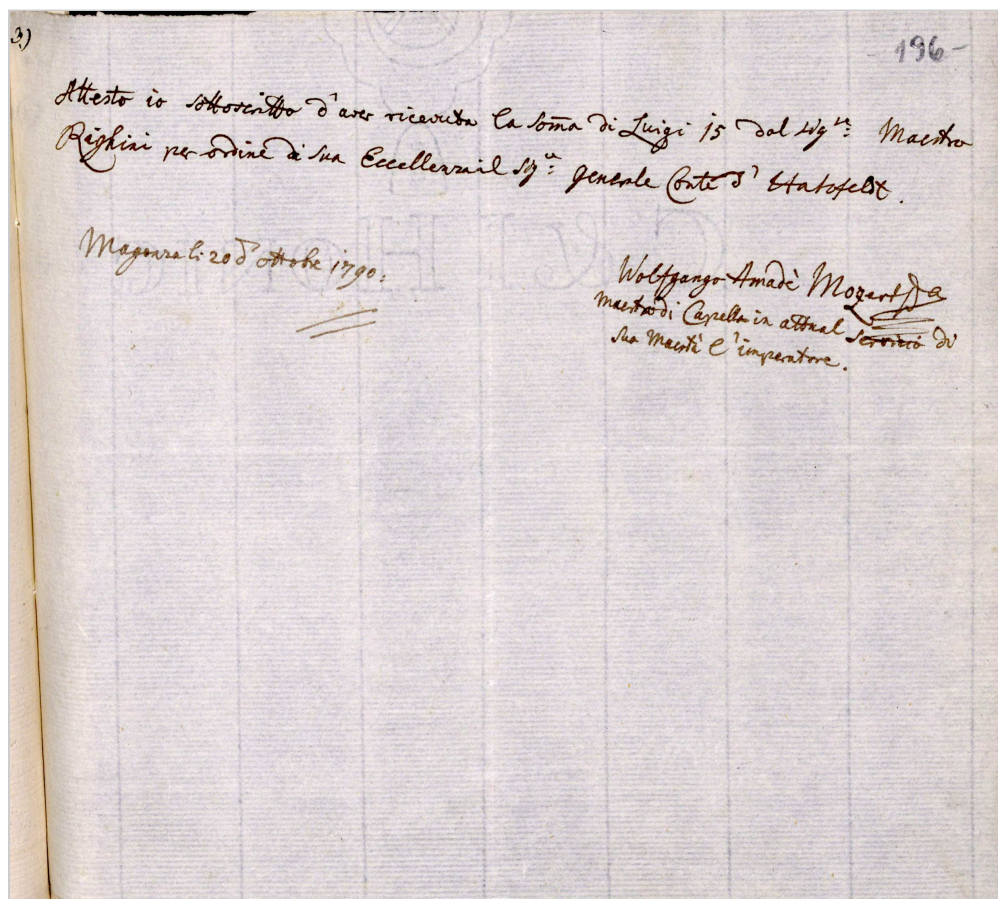 3)
-196-
Attesto io sottoscritto d'aver ricevuta la som̄a di Luigi 15 dal Sigre: Maestro
Righini per ordine di sua Eccellenza il Sgr: generale Conte d' Hatsfeldt.
Magonza li 20 d' ottobre 1790:
Wolfgango Amadè Mozart
Maestro di Capella in attual servicio di
sua Maestà l'imperatore.